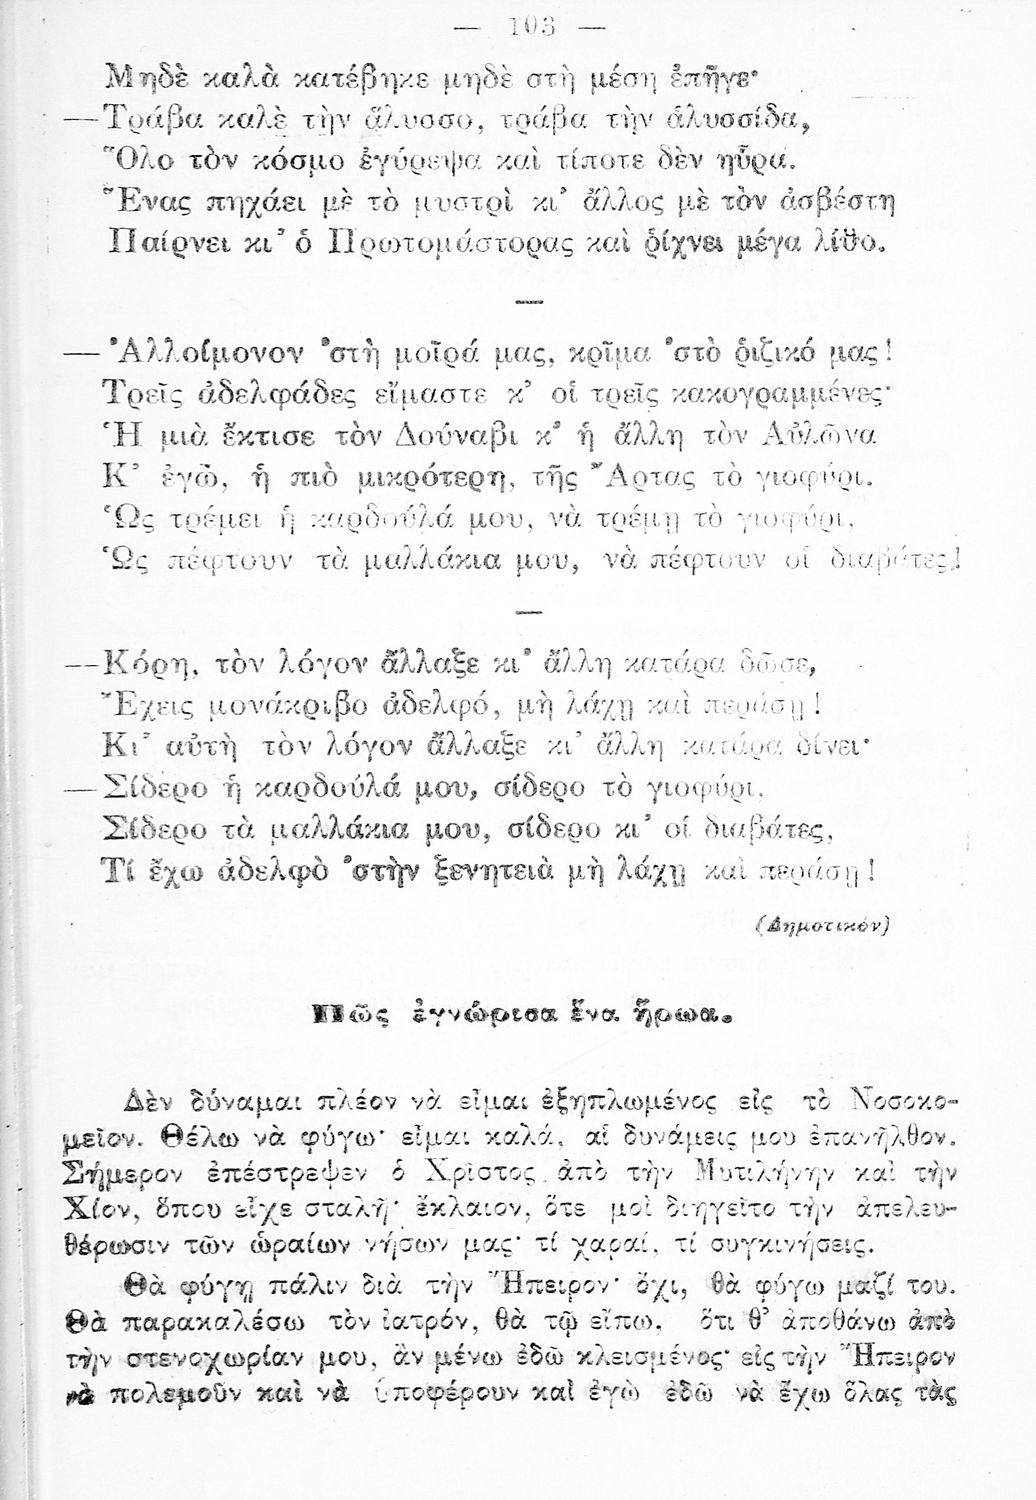 — 103 —
Μηδὲ καλὰ κατέβηκε μηδὲ στὴ μέση ἐπῆγε·
—Τράβα καλὲ τὴν ἅλυσσο, τράβα τὴν ἁλυσσίδα,
Ὅλο τὸν κόσμο ἐγύρεψα καὶ τίποτε δὲν ηὗρα.
Ἕνας πηχάει μὲ τὸ μυστρὶ κι᾿ ἄλλος μὲ τὸν ἀσβέστη
Παίρνει κι᾿ ὁ Πρωτομάστορας καὶ ῥίχνει μέγα λίθο.
—
— Ἀλλοίμονον ᾿στὴ μοῖρά μας, κρῖμα ᾿στὸ ῥιζικό μας!
Τρεῖς ἀδελφάδες εἴμαστε κ᾿ οἱ τρεῖς κακογραμμένες·
Ἡ μιὰ ἔκτισε τὸν Δούναβι κ᾿ ἡ ἄλλη τὸν Αὐλῶνα
Κ᾿ ἐγὼ, ἡ πιὸ μικρότερη, τῆς Ἄρτας τὸ γιοφύρι.
Ὡς τρέμει ἡ καρδοῦλά μου, νὰ τρέμῃ τὸ γιοφύρι,
Ὡς πέφτουν τὰ μαλλάκια μου, νὰ πέφτουν οἱ διαβάτες!
—
—Κόρη, τὸν λόγον ἄλλαξε κι᾿ ἄλλη κατάρα δῶσε,
Ἔχεις μονάκριβο ἀδελφό, μὴ λάχῃ καὶ περάσῃ!
Κι᾿ αὐτὴ τὸν λόγον ἄλλαξε κι᾿ ἄλλη κατάρα δίνει·
—Σίδερο ἡ καρδοῦλά μου, σίδερο τὸ γιοφύρι,
Σίδερο τὰ μαλλάκια μου, σίδερο κι᾿ οἱ διαβάτες,
Τί ἔχω ἀδελφὸ ᾿στὴν ξενητειὰ μὴ λάχῃ καὶ περάσῃ!
(Δημοτικόν)
Πῶς ἐγνώρισα ἕνα ἥρωα.
Δὲν δύναμαι πλέον νὰ εἶμαι ἐξηπλωμένος εἰς τὸ Νοσοκο-
μεῖον. Θέλω νὰ φύγω· εἶμαι καλά, αἱ δυνάμεις μου ἐπανῆλθον.
Σήμερον ἐπέστρεψεν ὁ Χρῖστος ἀπὸ τὴν Μυτιλήνην καὶ τὴν
Χίον, ὅπου εἶχε σταλῆ· ἔκλαιον, ὅτε μοὶ διηγεῖτο τὴν ἀπελευ-
θέρωσιν τῶν ὡραίων νήσων μας· τί χαραί, τί συγκινήσεις.
Θὰ φύγῃ πάλιν διὰ τὴν Ἤπειρον· ὄχι, θὰ φύγω μαζί του.
Θὰ παρακαλέσω τὸν ἰατρόν, θὰ τῷ εἴπω, ὅτι θ᾿ ἀποθάνω ἀπὸ
τὴν στενοχωρίαν μου, ἂν μένω ἐδῶ κλεισμένος· εἰς τὴν Ἤπειρον
νὰ πολεμοῦν καὶ νὰ ὑποφέρουν καὶ ἐγὼ ἐδῶ νὰ ἔχω ὅλας τὰς